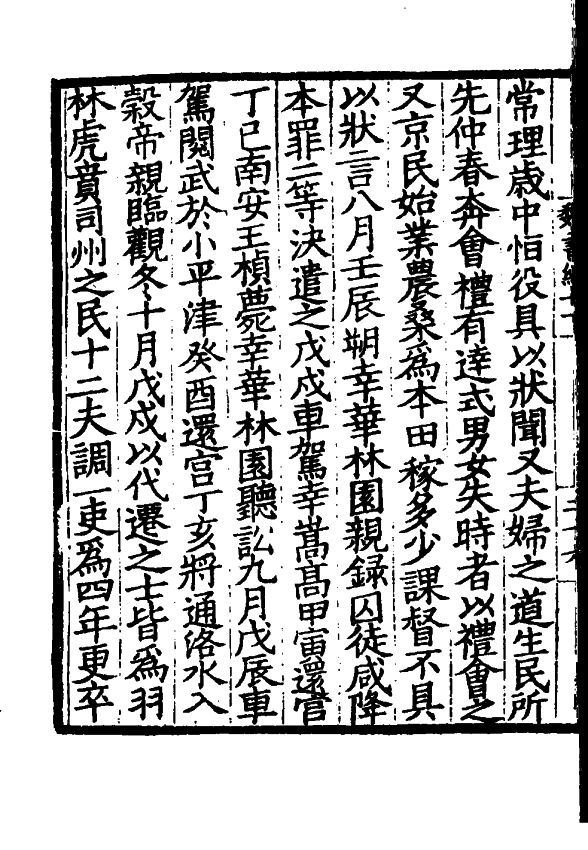 常理歲中恒役具以狀聞又夫婦之道生民所
先仲春奔會禮有達式男女失時者以禮會之
又京民始業農桑爲本田稼多少課督不具
以狀言八月壬辰朔幸華林園親錄囚徒咸降
本罪二等決遣之戊戌車駕幸嵩高甲寅還宮
丁巳南安王楨薨幸華林園聽訟九月戊辰車
駕閱武於小平津癸酉還宮丁亥將通洛水入
穀帝親臨觀冬十月戊戌以代遷之士皆爲羽
林虎賁司州之民十二夫調一吏爲四年更卒